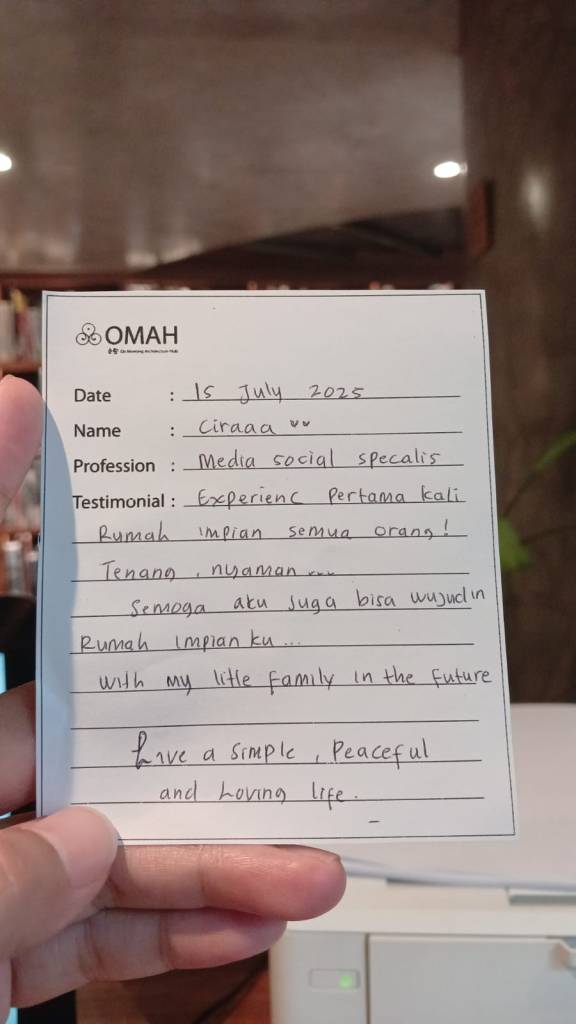 OMAH
Date : 15 July 2025
Name : Ciraaa
Profession : Media social specalis
Testimonial : Experienc Pertama kali
Rumah impian semua orang!
Tenang, nyaman...
Semoga aku juga bisa wujudin
Rumah impian ku...
with my litle family in the future
Live a simple, Peaceful
and Loving life.